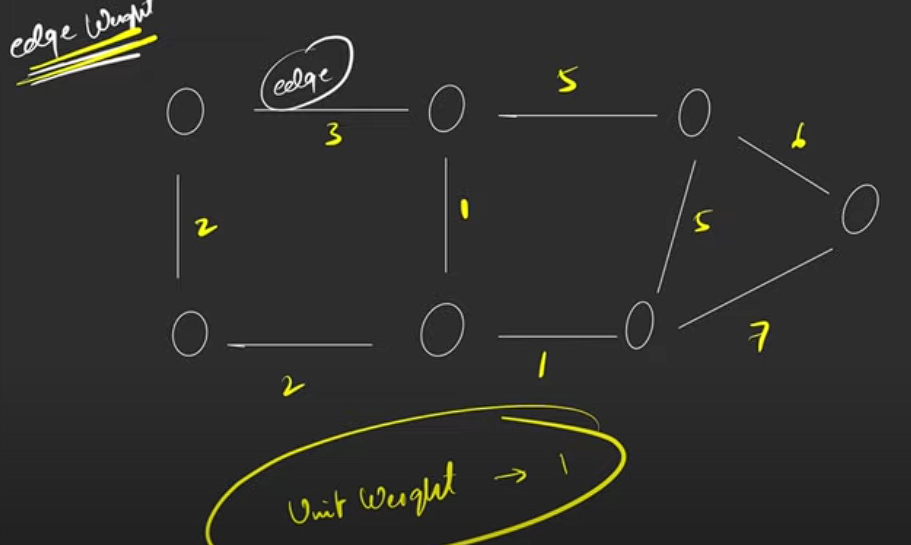 edge Weight
edge
3
5
6
2
1
5
7
2
1
Unit Weight → 1